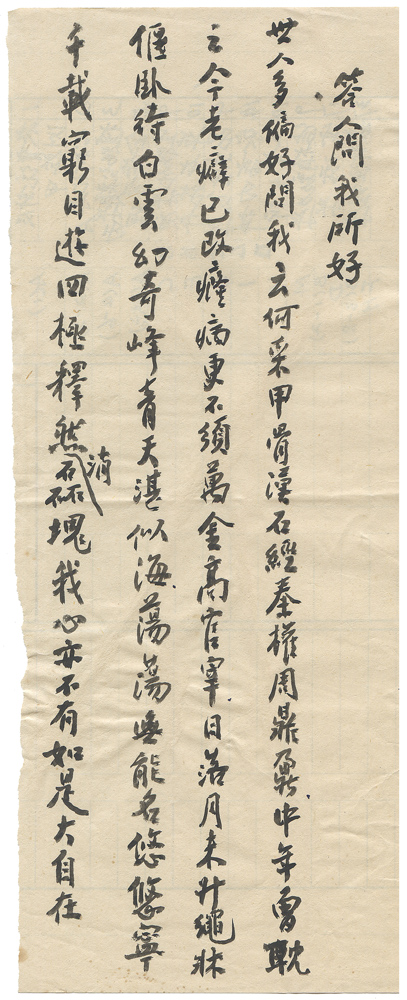 答人問我所好
世人多偏好問我云何采甲骨漢石經秦權周鼎鼐中年曾耽
之今老癖已改癃病更不須萬金高官宰日落月未升繩牀
偃臥待白雲幻奇峰青天湛似海蕩蕩無能名悠悠寧
千載窮目遊四極釋然消磊塊我心亦不有如是大自在